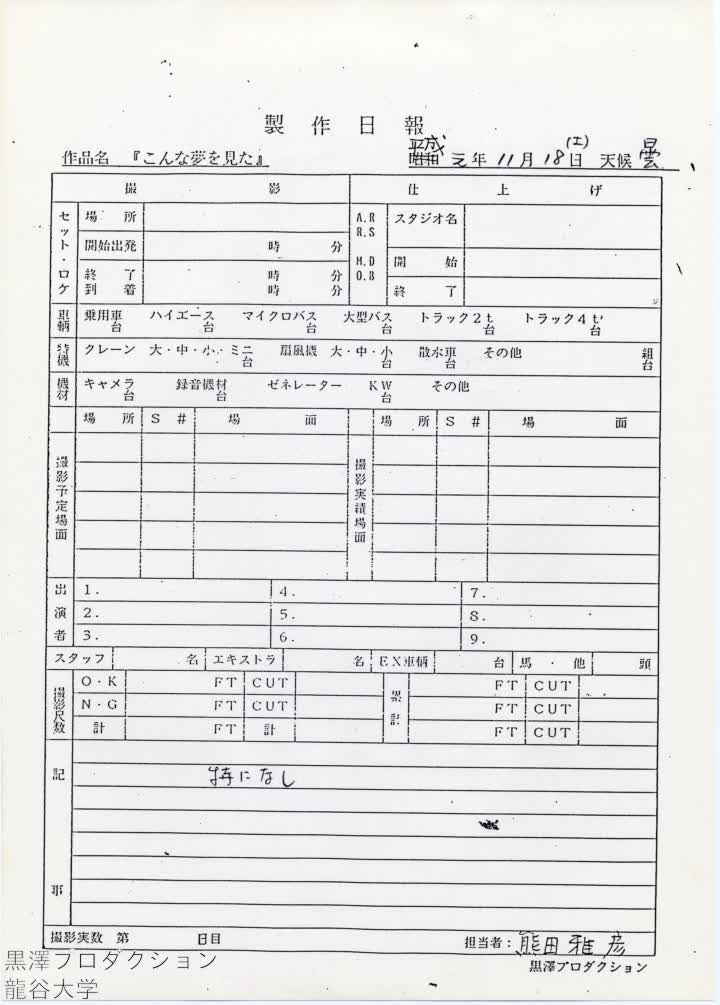 製作日報
作品名 『こんな夢を見た』 平成 昭和 元年11月18日(土) 天候 曇
撮影 仕上げ
セット・ロケ 場所 A.R R.S スタジオ名
開始出発 時 分 M.D O.B 開始
終了 時 分 終了
到着 時 分
車輌 乗用車 台 ハイエース 台 マイクロバス 台 大型バス 台 トラック2t 台 トラック4t 台
特機 クレーン 大・中・小・ミニ 台 扇風機 大・中・小 台 散水車 台 その他 組 台
機材 キャメラ 台 録音機材 台 ゼネレーター KW 台 その他
場所 S# 場面 場所 S# 場面
撮影予定場面 撮影実績場面
出演者 1. 4. 7.
2. 5. 8.
3. 6. 9.
スタッフ 名 エキストラ 名 EX車輌 台 馬・他 頭
撮影尺数 O・K FT CUT 累計 FT CUT
N・G FT CUT FT CUT
計 FT 計 FT CUT
記事
特になし
撮影実数 第 日目 担当者:熊田雅彦
黒澤プロダクション
黒澤プロダクション
龍谷大学